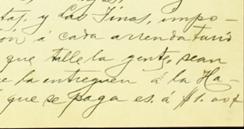 y las Tinas, impo-
ón á cada arrendatario
que talle la gente, sean
e la entreguen á la Ha-
que se paga es á $1.00